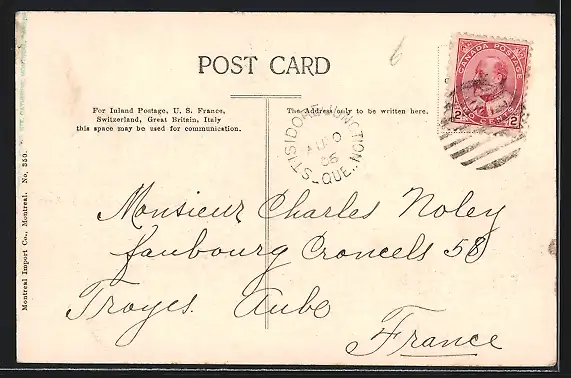 POST CARD
6
CANADA POSTAGE
2 CENTS 2
For Inland Postage, U. S. France,
Switzerland, Great Britain, Italy
this space may be used for communication.
The Address only to be written here.
ST ISIDORE JUNCTION
AU 0
06
QUE.
Monsieur Charles Noley
faubourg Croncels 58
Troyes. Aube
France
Montreal Import Co., Montreal. No. 350.